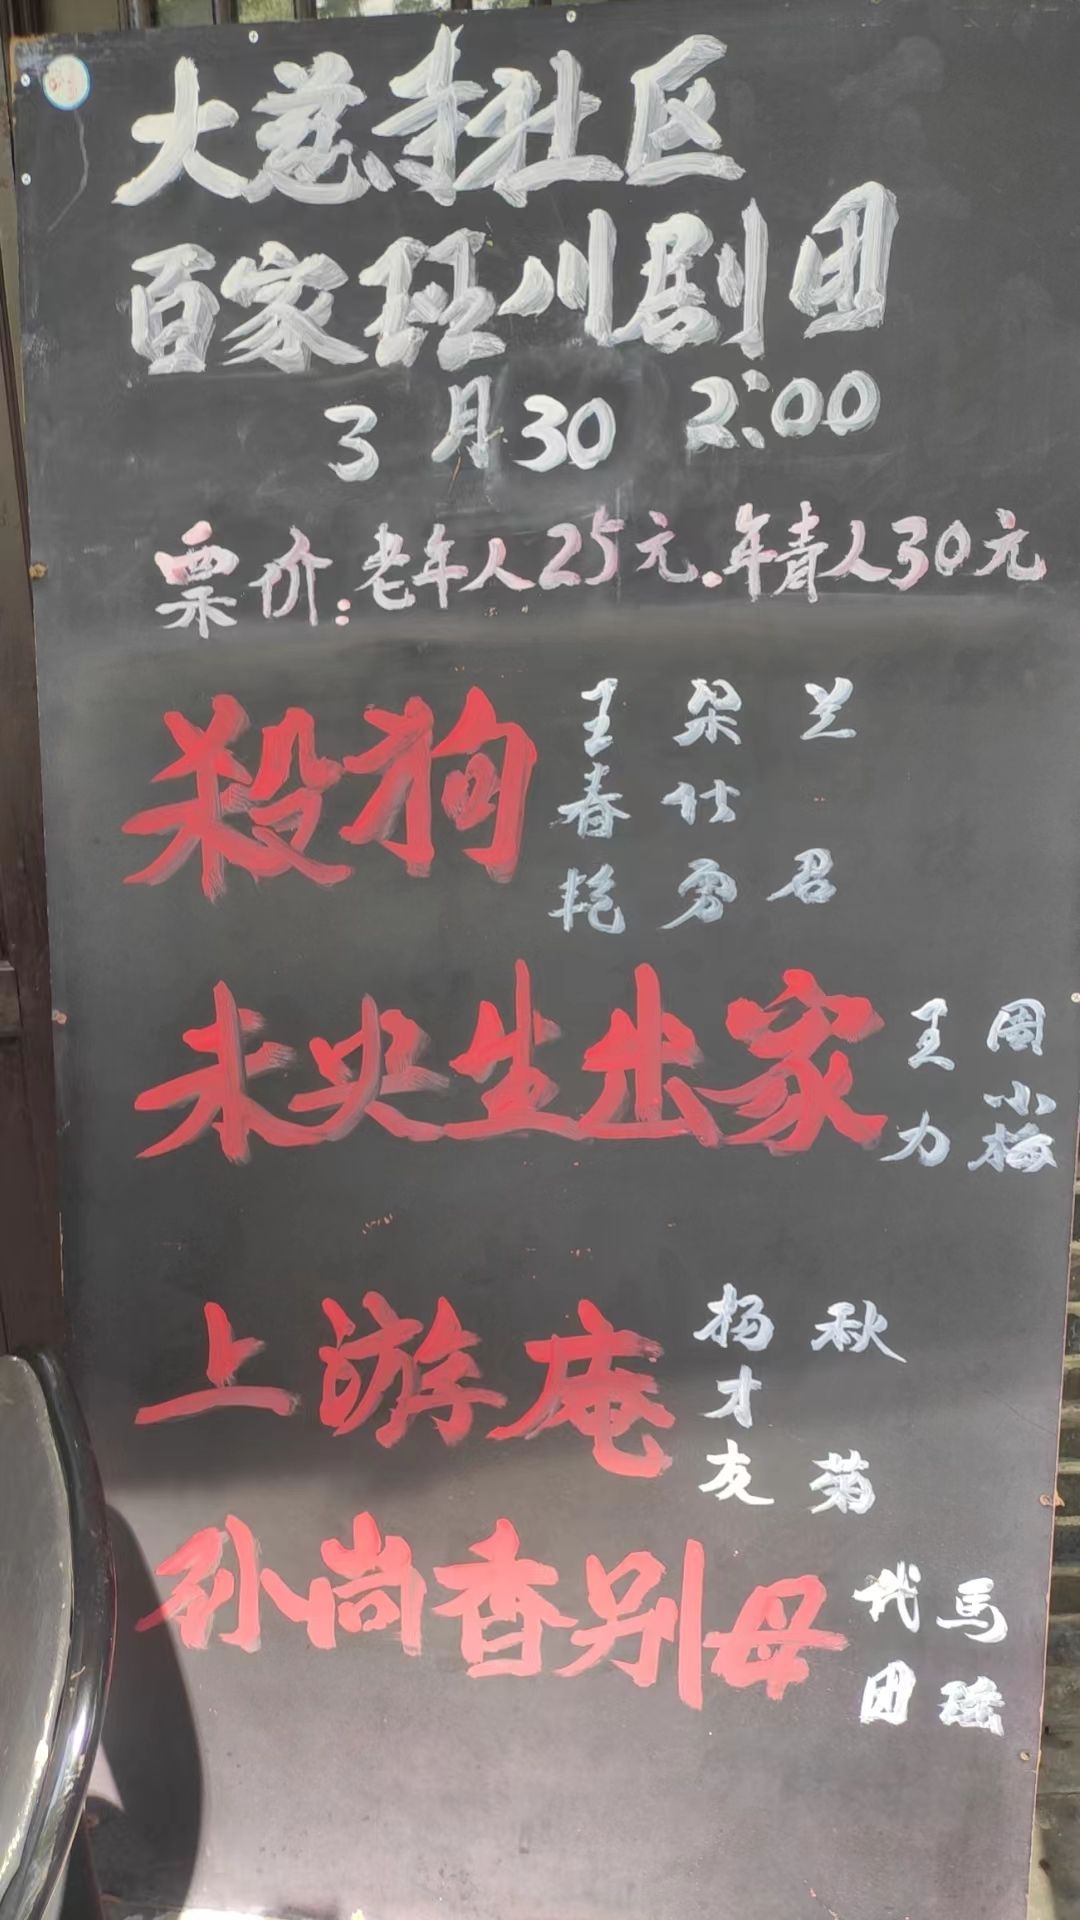 大慈寺社区
百家班川剧团
3月30 2:00
票价:老年人25元.年青人30元
殺狗 王春艳 梁仕勇 兰君
未央生出家 王力 周小梅
上游庵 杨才友 秋菊
孙尚香别母 代团 馬瑶